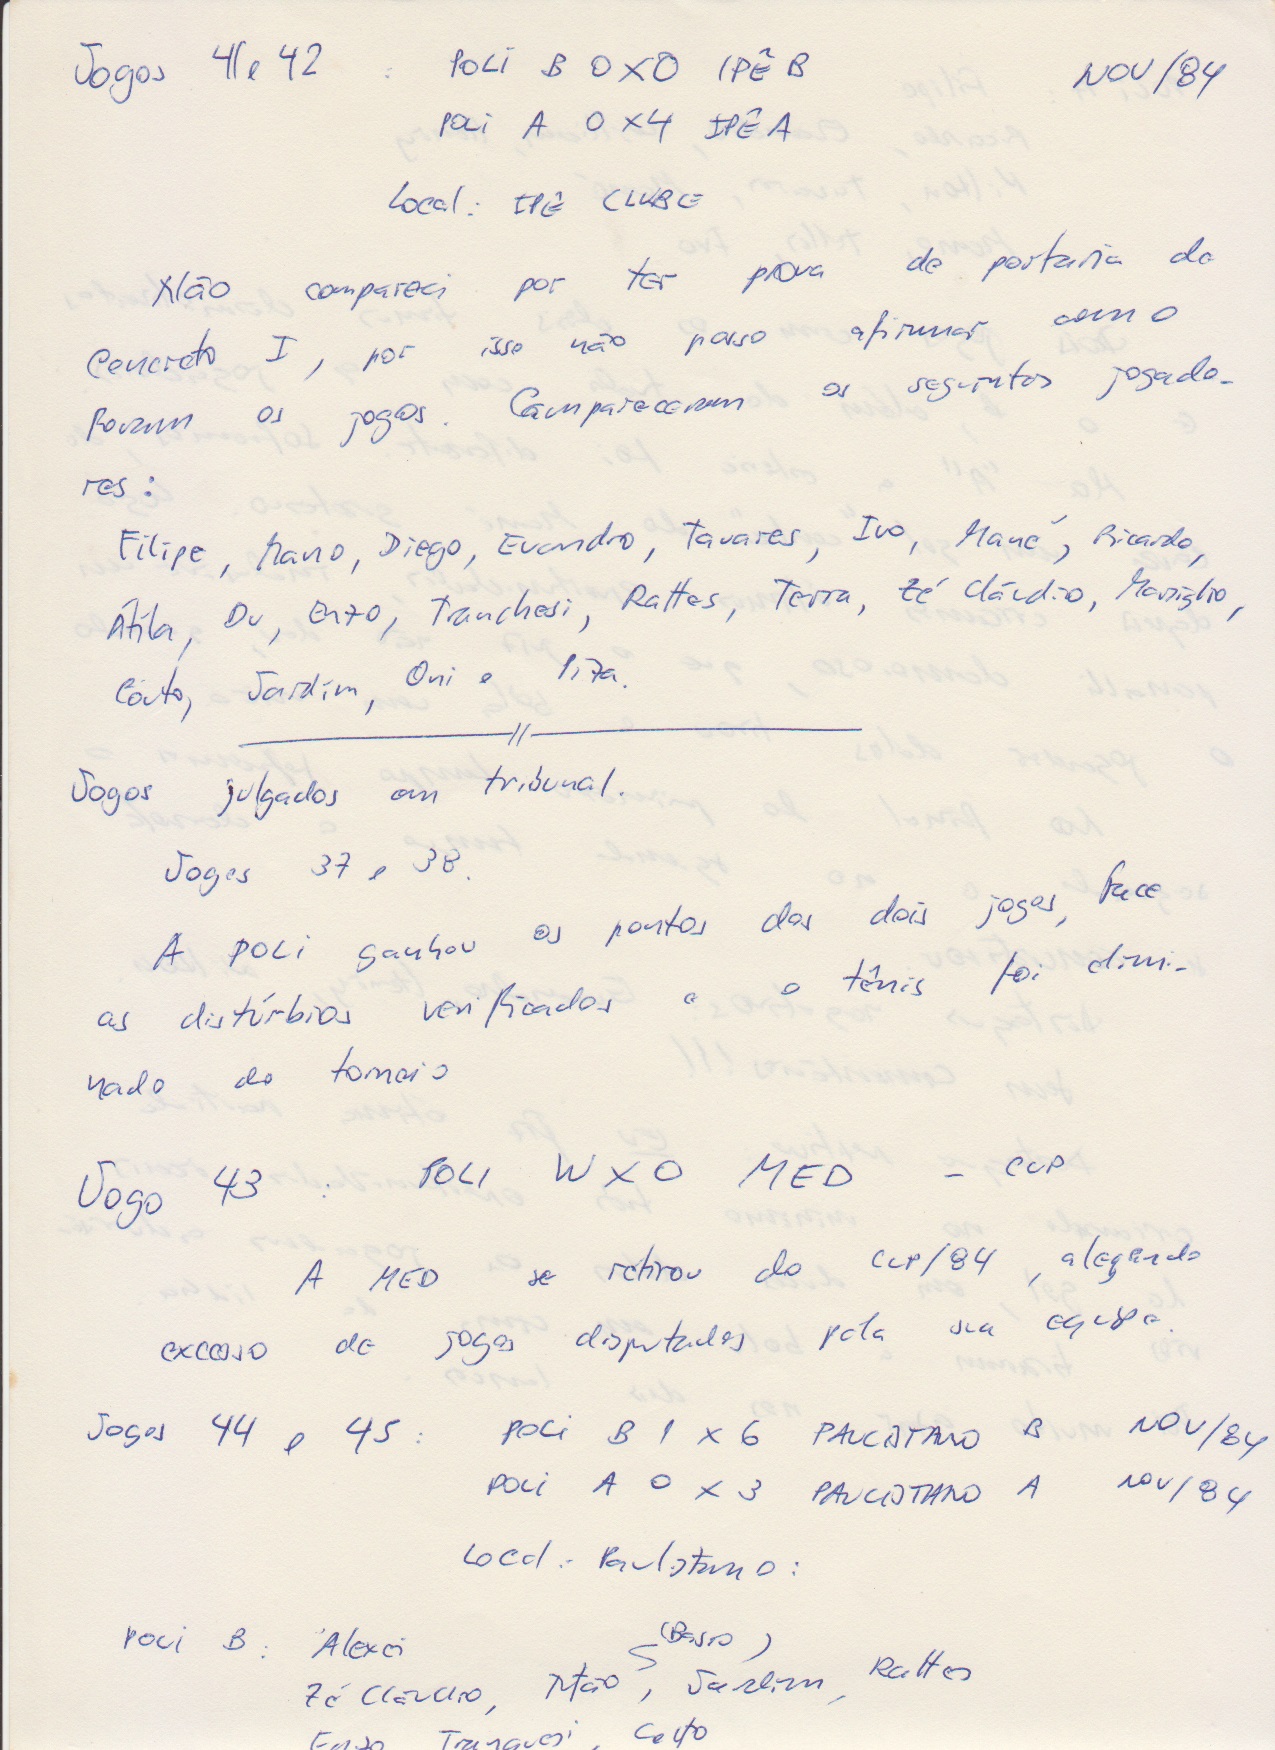 Jogos 41 e 42 : POLI B 0 X 0 IPÊ B NOV/84
POLI A 0 X 4 IPÊ A
Local: IPÊ CLUBE
Não compareci por ter prova de portaria de
Concreto I, por isso não posso afirmar como
foram os jogos. Compareceram os seguintes jogado-
res:
Filipe, Mano, Diego, Evandro, Tavares, Ivo, Mané, Ricardo,
Átila, Du, Enzo, Tranchesi, Rattes, Terra, Zé Cláudio, Mariglio,
Couto, Jardim, Oni e Piza.
Jogos julgados em tribunal.
Jogos 37 e 38.
A POLI ganhou os pontos dos dois jogos, face
as distúrbios verificados e o tênis foi elimi-
nado do torneio
Jogo 43 : POLI W X O MED - CUP
A MED se retirou do CUP/84, alegando
excesso de jogos disputados pela sua equipe.
Jogos 44 e 45 : POLI B 1 X 6 PAULISTANO B NOV/84
POLI A 0 X 3 PAULISTANO A NOV/84
Local: Paulistano:
POLI B : Alexei
(Basso)
Zé Cláudio, Mão, Jardim, Rattes
Enzo, Couto